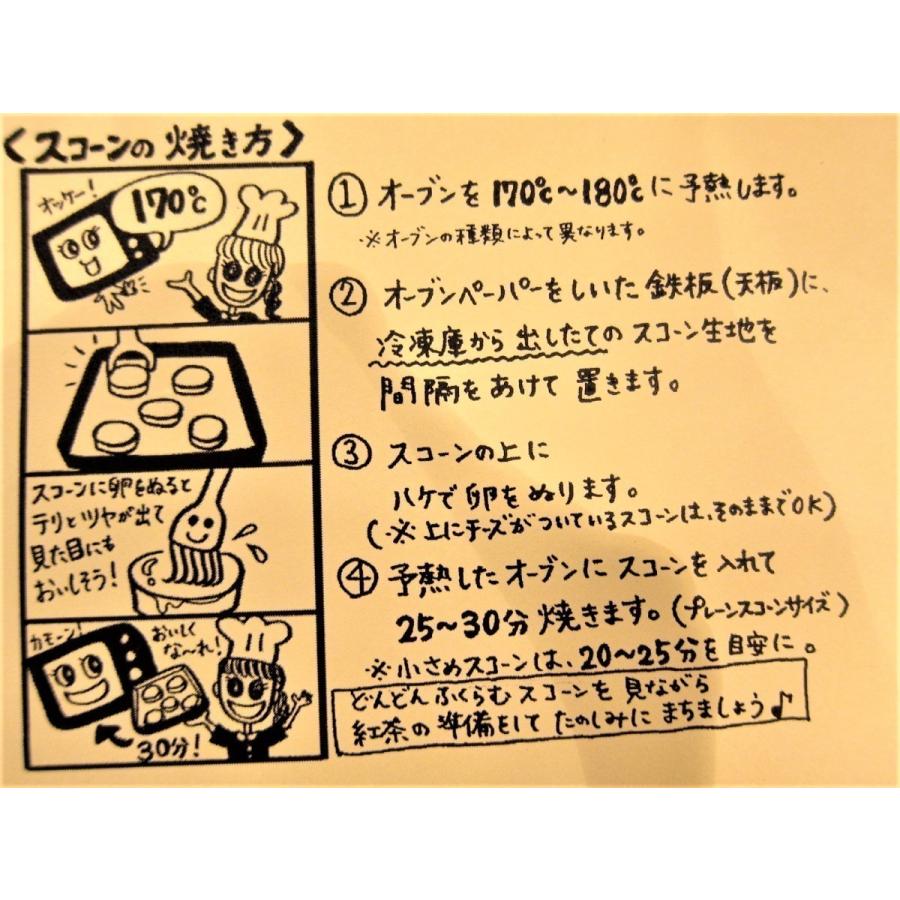 〈スコーンの焼き方〉
オッケー!
170℃
スコーンに卵をぬると
テリとツヤが出て
見た目にも
おいしそう!
カモーン!
おいしく
な〜れ!
30分!
① オーブンを170℃〜180℃に予熱します。
※オーブンの種類によって異なります。
② オーブンペーパーをしいた鉄板(天板)に、
冷凍庫から出したてのスコーン生地を
間隔をあけて置きます。
③ スコーンの上に
ハケで卵をぬります。
(※上にチーズがついているスコーンは、そのままでOK)
④ 予熱したオーブンにスコーンを入れて
25〜30分焼きます。(プレーンスコーンサイズ)
※小さめスコーンは、20〜25分を目安に。
どんどんふくらむスコーンを見ながら
紅茶の準備をしてたのしみにまちましょう♪